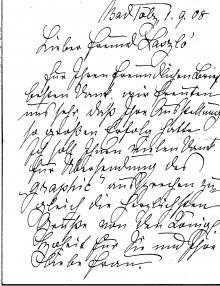 Bad Tölz 1.9.08
Lieber Freund László
Für Ihren freundlichen Brief
besten Dank, wir freuten
uns sehr, daß Ihre Ausstellung
so großen Erfolg hatte
Ich soll Ihnen vielen Dank
für Übersendung des
"Graphic" aussprechen zu-
gleich die herzlichsten
Grüße von den Königl.
Hoheit für Sie und Ihre
liebe Frau.